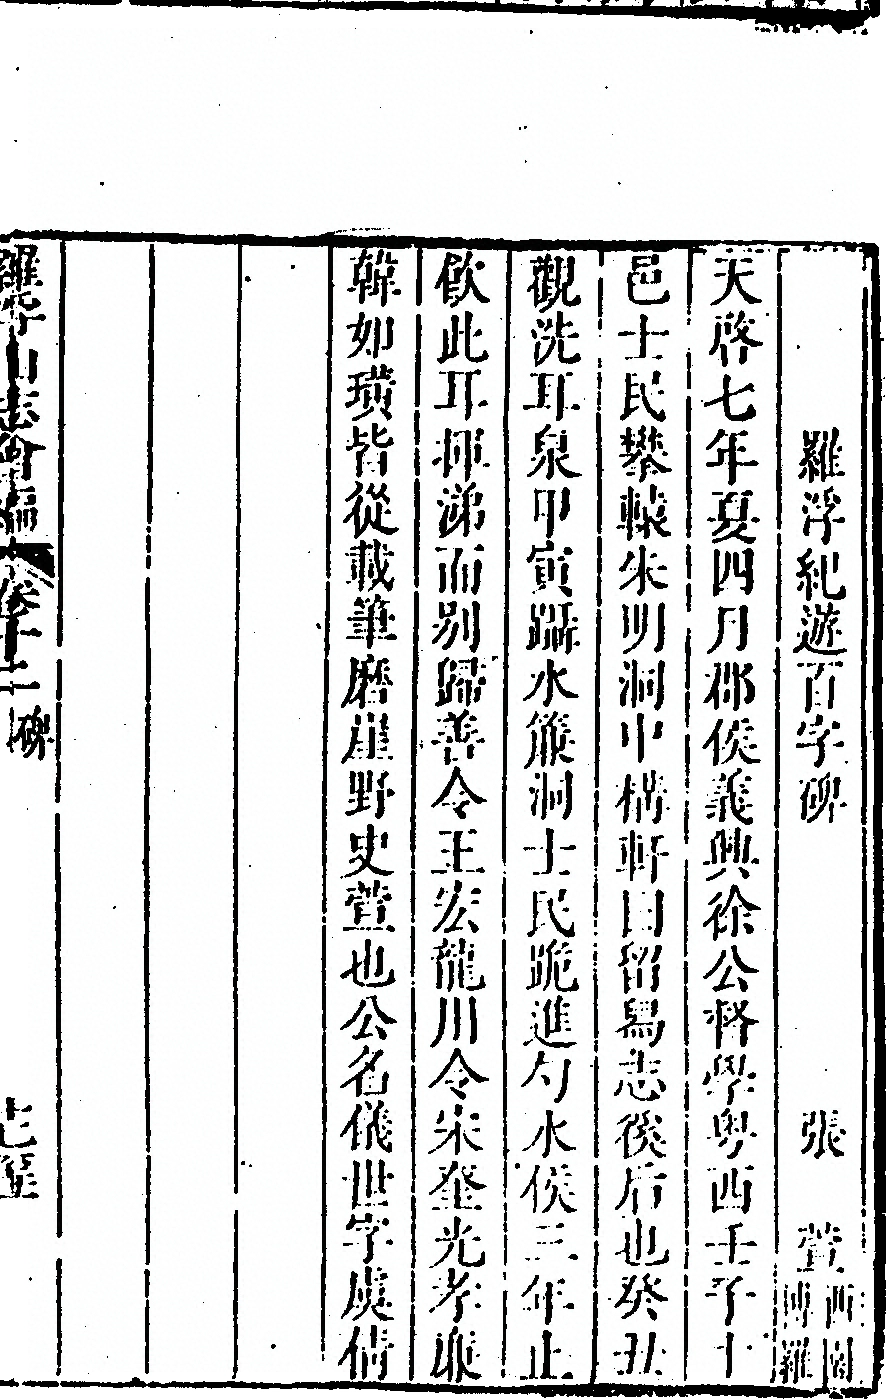 羅浮紀遊百字碑　張萱西園博羅
天啓七年夏四月郡侯義興徐公督學粵西壬子十
邑士民攀轅朱明洞中構軒曰留舄志後后也癸丑
觀洗耳泉甲寅躡水簾洞士民跪進勺水侯三年止
飲此耳揮涕而別歸善令王宏龍川令宋奎光孝廉
韓如璜皆從載筆磨崖野史萱也公名儀世字虞倩
羅浮山志會編　卷十二碑